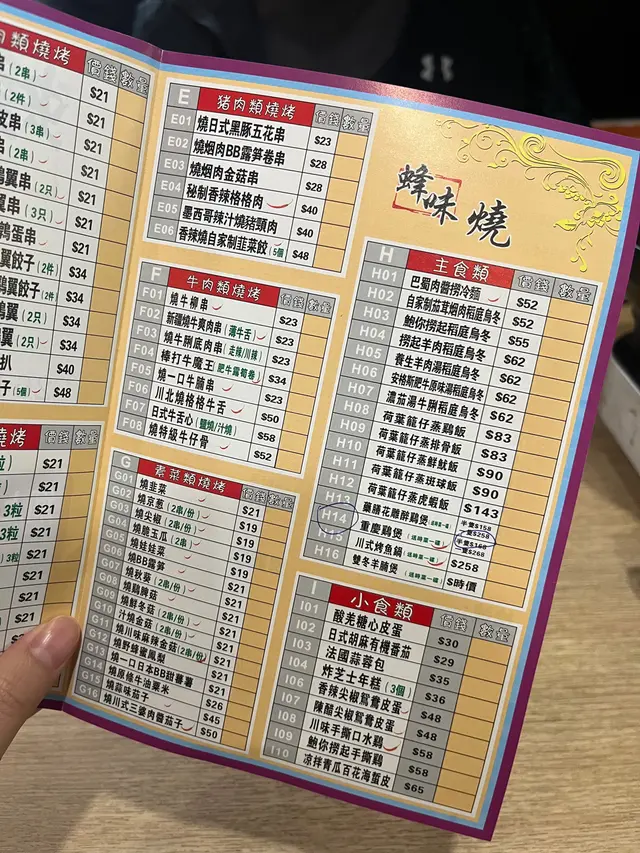 肉類燒烤 價錢 數量
串(2串) $21
(2件) $21
皮串(3串) $21
串(2串) $21
翼(2只) $21
串(3只) $21
鵪蛋串 $21
翼餃子(2件) $34
翼餃子(2件) $34
翼(2只) $34
扒 $40
子(5個) $48
燒烤 價錢 數量
粒 $21
$21
3粒 $21
3粒 $21
3粒 $21
$21
$21
$21
E 豬肉類燒烤 價錢 數量
E01 燒日式黑豚五花串 $23
E02 燒烟肉BB露笋卷串 $28
E03 燒烟肉金菇串 $28
E04 秘制香辣格格肉 $40
E05 墨西哥辣汁燒猪頸肉 $40
E06 香辣燒自家制韮菜餃(5個) $48
F 牛肉類燒烤 價錢 數量
F01 燒牛柳串 $23
F02 新疆燒牛爽肉串(灑牛舌) $23
F03 燒牛脷底肉串(走辣/川辣) $23
F04 棒打牛魔王(肥牛露荀卷) $34
F05 燒一口牛腩串 $23
F06 川北燒格格牛舌 $50
F07 日式牛舌心(鹽燒/汁燒) $58
F08 燒特級牛仔骨 $52
G 素菜類燒烤 價錢 數量
G01 燒韭菜 $21
G02 燒京葱(2串/份) $19
G03 燒尖椒(2串/份) $19
G04 燒脆玉瓜(2串) $19
G05 燒娃娃菜 $19
G06 燒BB露笋 $21
G07 燒秋葵(2串/份) $21
G08 燒鷄脾菇 $21
G09 燒鮮冬菇(2串/份) $21
G10 汁燒金菇(2串/份) $21
G11 燒川味麻辣金菇(2串/份) $21
G12 燒野蜂蜜鳳梨 $21
G13 一口日本BB甜薯薯 $21
G14 燒原條牛油粟米 $26
G15 燒蒜味茄子 $45
G16 燒川式三婆肉醬茄子 $50
蜂味燒
H 主食類 價錢 數量
H01 巴蜀肉醬撈冷麵 $52
H02 自家制茄茸烟肉稻庭烏冬 $52
H03 鮑你撈起稻庭烏冬 $55
H04 撈起羊肉稻庭烏冬 $62
H05 養生羊肉湯稻庭烏冬 $62
H06 安格斯肥牛原味湯稻庭烏冬 $62
H07 濃茄湯牛脷稻庭烏冬 $62
H08 荷葉籠仔蒸鷄飯 $83
H09 荷葉籠仔蒸排骨飯 $83
H10 荷葉籠仔蒸魷飯 $90
H11 荷葉籠仔蒸斑球飯 $90
H12 荷葉籠仔蒸虎蝦飯 $143
H13 藥膳花雕醉鷄煲 半隻$158 隻$258
H14 重慶鷄煲(送時菜一碟) 半隻$168 隻$268
H15 川式烤魚鍋(送時菜一碟) $258
H16 雙冬羊腩煲(送時菜一碟) $時價
I 小食類 價錢 數量
I01 酸羌糖心皮蛋 $30
I02 日式胡麻有機番茄 $29
I03 法國蒜蓉包 $35
I04 炸芝士年糕(3個) $36
I05 香辣尖椒鴛鴦皮蛋 $48
I06 陳醋尖椒鴛鴦皮蛋 $48
I07 川味手撕口水鷄 $58
I08 鮑你撈起手撕鷄 $58
I09 凉拌青瓜百花海蜇皮 $65
I10